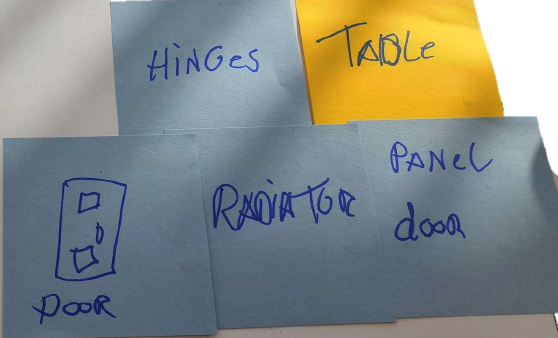 HiNGes
TABLe
DOOR
RADiATOR
PANeL
dooR